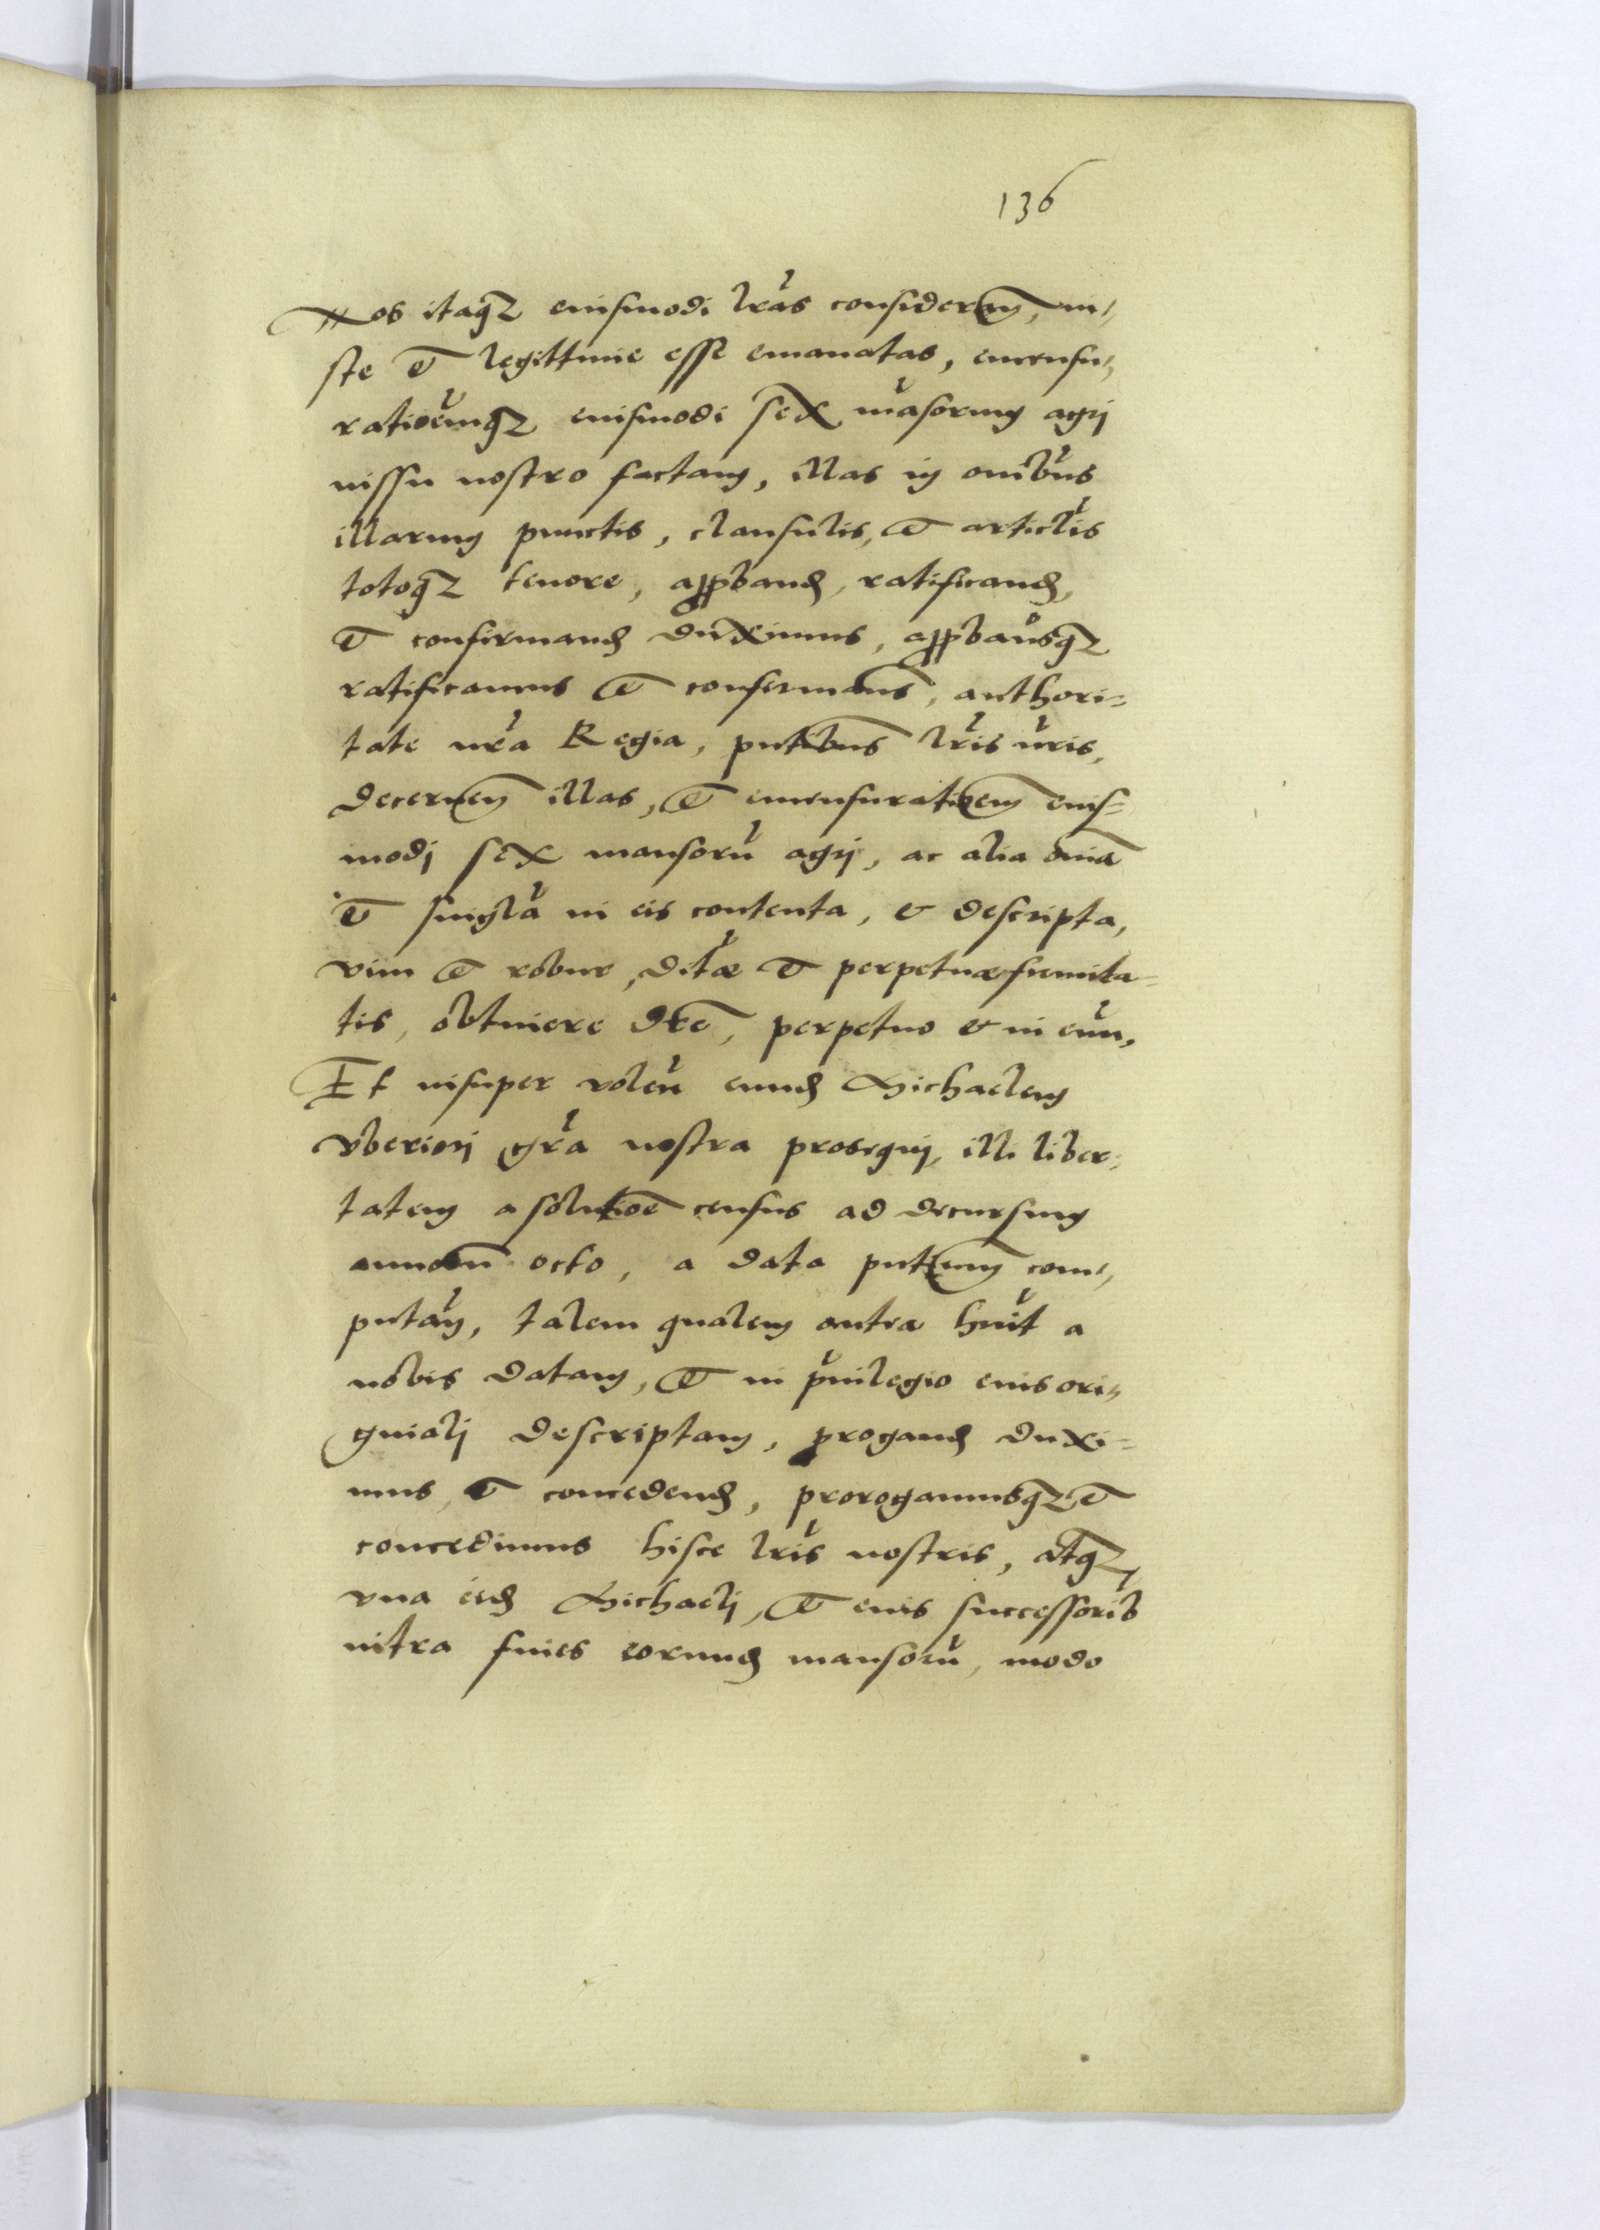 136
Nos itaq3 eiusmodi lras consideran, iu¬
ste et legittime esse emanatas, emensu¬
rationemq3 eiusmodi sex mansorum agri
iussu nostro factam, illas in omibus
illarum punctis, clausulis, et articlis
totoq3 tenore, approband, ratificand,
et confirmand duximus, approbamusq3
ratificamus et confirmams, authori=
tate nra Regia, pntibus lris nris,
decernen illas, et emensurationem eius=
modj sex mansoru agrj, ac alia omia
et singla in eis contenta, & descripta,
vim et robur, debitae et perpetuae firmita=
tis, obtinere dre, perpetuo & in euu,
Et insuper volen eund Michaelem
vberiorj gra nostra prosequj, illi liber¬
tatem a solutioe census ad decursum
annoru octo, a data pntium com¬
putan, talem qualem antea huit a
nobis datam, et in priuilegio eius ori¬
ginalj descriptam, progand duxi=
mus, et concedend, prorogamusq3 et
concedimus hisce lris nostris, atq3
vna eid Michaelj, et eius successorib
intra fines eorund mansoru, modo